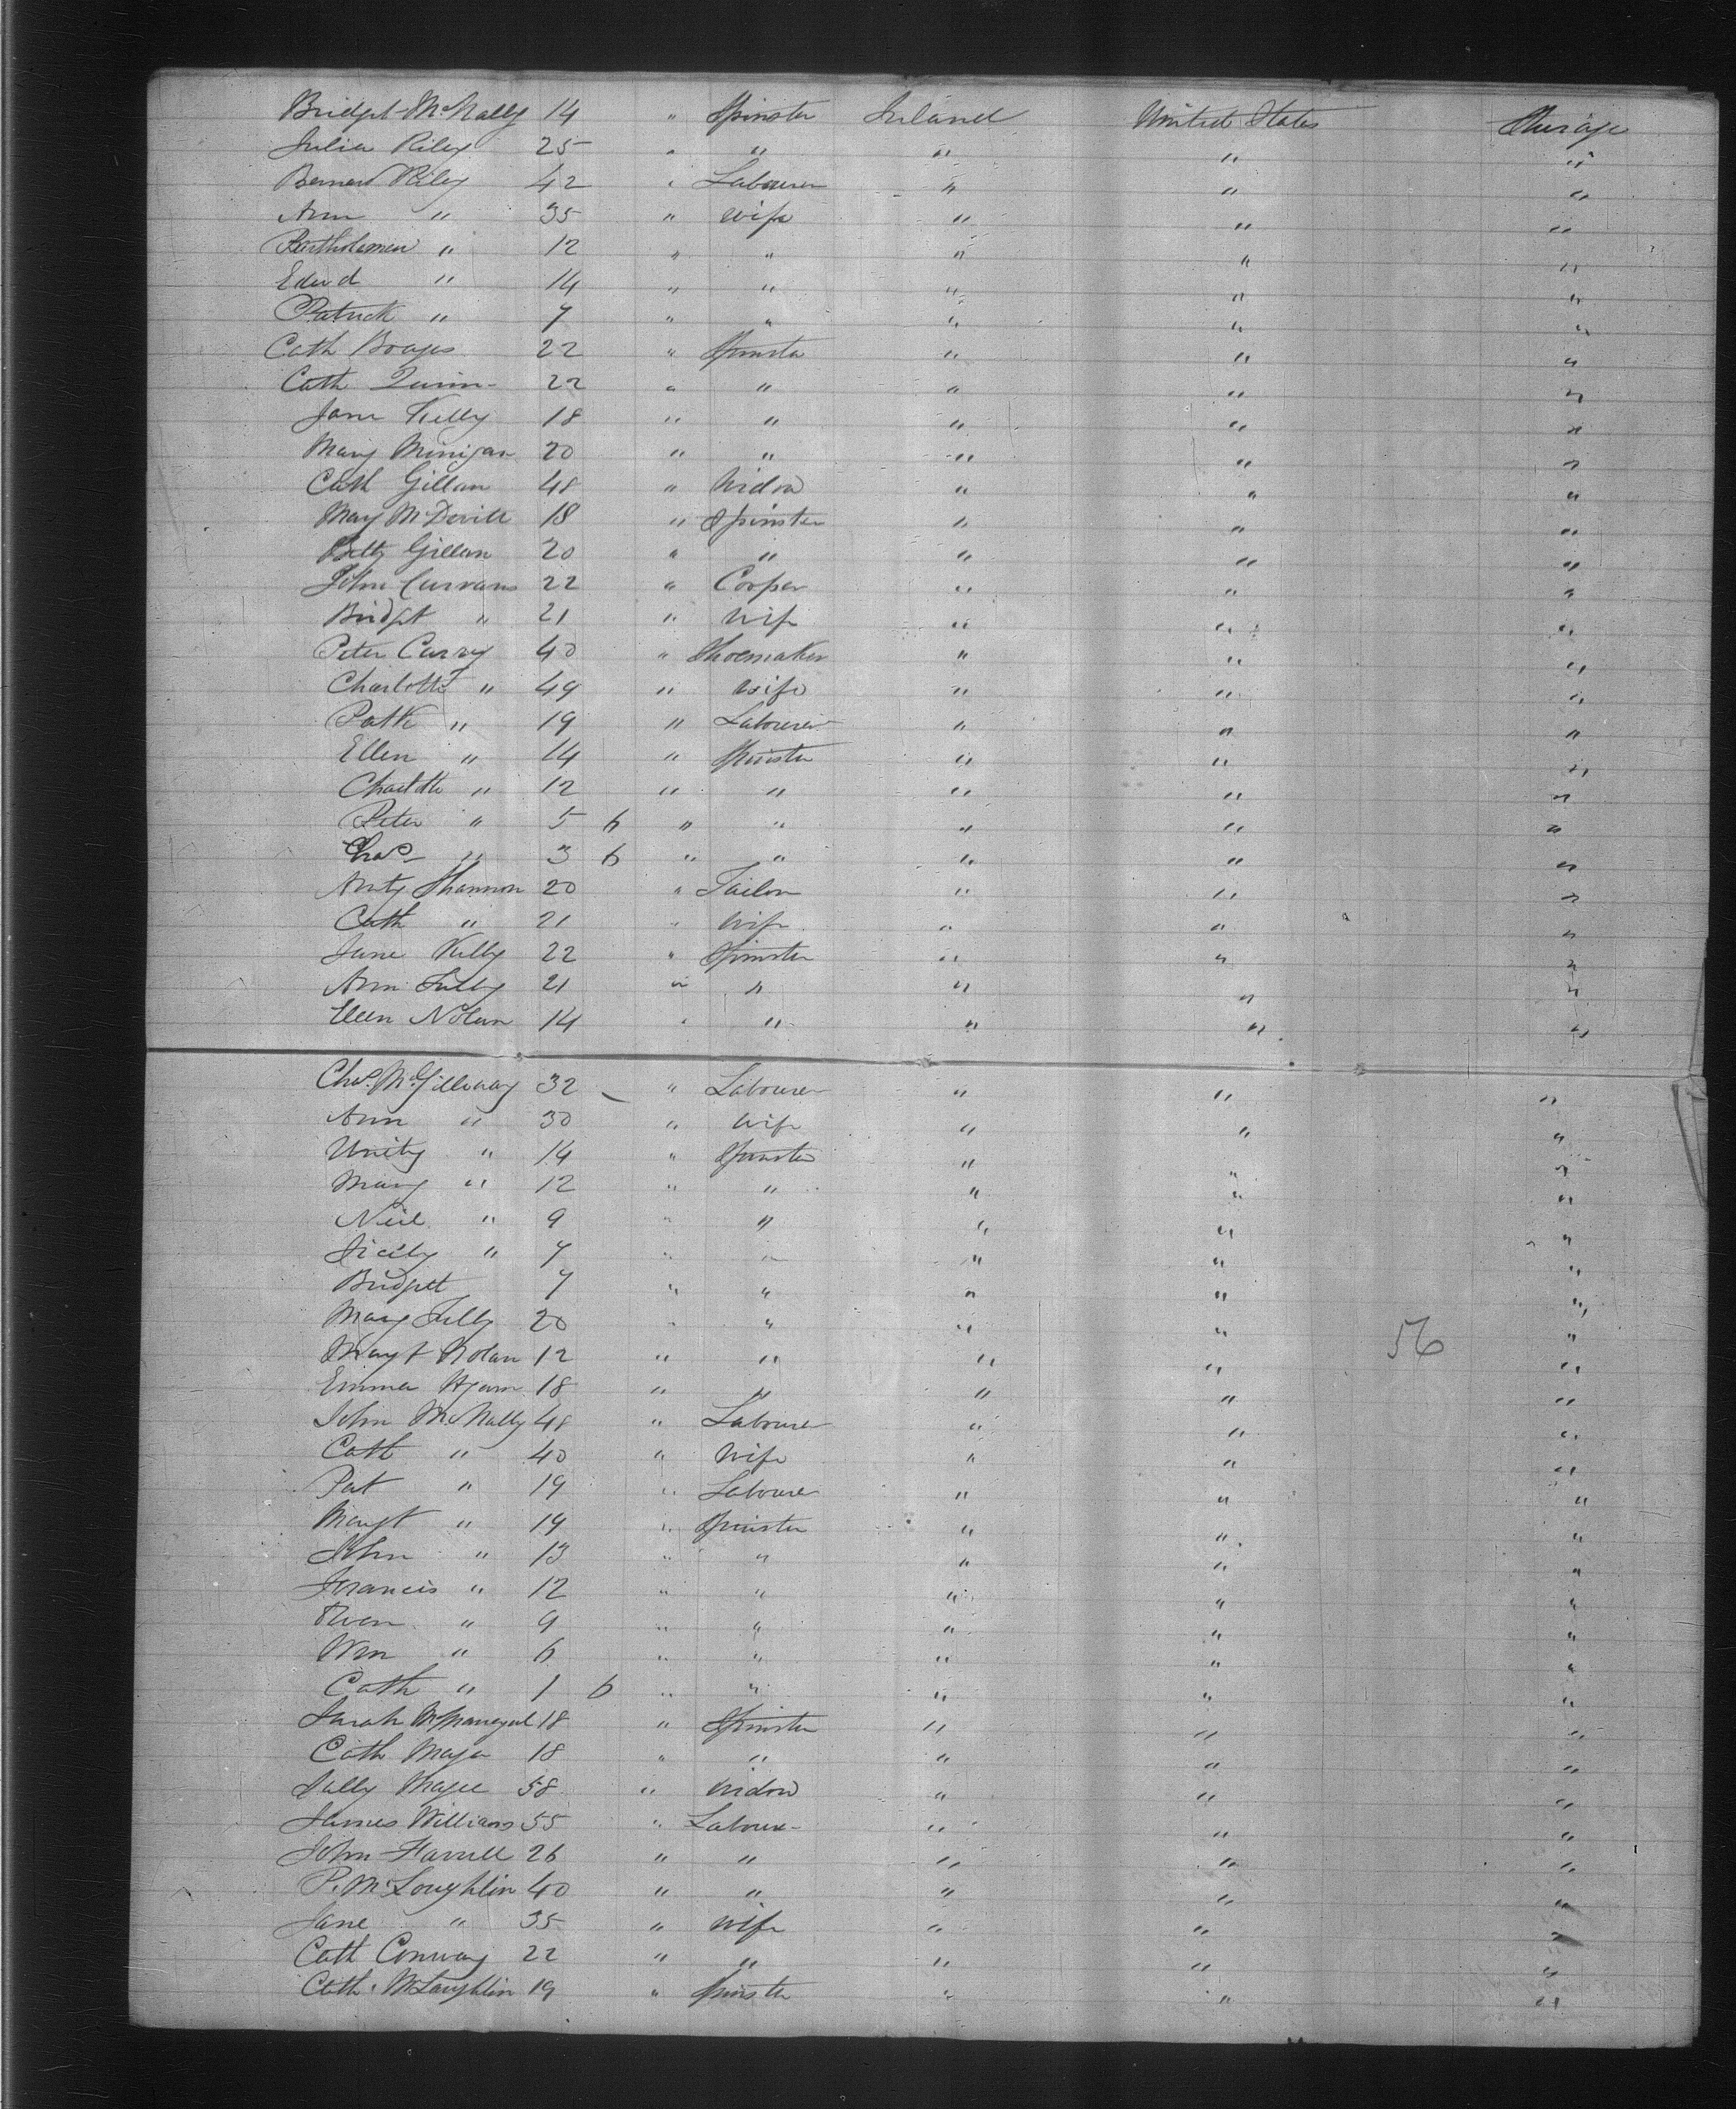 Bridget McNally 14 " Spinster Ireland United States Steerage
Julia Riley 25 " " " " "
Bernard Riley 42 " Labourer " " "
Ann " 35 " wife " " "
Bartholomew " 12 " " " " "
Edwd " 14 " " " " "
Patrick " 7 " " " " "
Cath 22 " Spinster " " "
Cath Quinn 22 " " " " "
Jane Kelly 18 " " " " "
Mary Minigan 20 " " " " "
Cath Gillan 48 " Widow " " "
Mary McDevitt 18 " Spinster " " "
Betty Gillan 20 " " " " "
John Currans 22 " Cooper " " "
Bridget " 21 " Wife " " "
Peter Carry 40 " Shoemaker " " "
Charlotte " 49 " Wife " " "
Patk " 19 " Labourer " " "
Ellen " 14 " Spinster " " "
Charlotte " 12 " " " " "
Peter " 5 6 " " " " "
Chas " 3 6 " " " " "
Anty Shannon 20 " Tailor " " "
Cath " 21 " Wife " " "
Jane Kelly 22 " Spinster " " "
Ann Tully 21 " " " " "
Ellen Nolan 14 " " " " "
Chas. McGilloway 32 " Labourer " " "
Ann " 30 " Wife " " "
Unity " 14 " Spinster " " "
Mary " 12 " " " " "
Neil " 9 " " " " "
Sicily " 7 " " " " "
Bridgett 7 " " " " "
Mary Tully 20 " " " " "
Margt Nolan 12 " " " 56 " "
Emma 18 " " " " "
John McNally 48 " Labourer " " "
Cath " 40 " Wife " " "
Pat " 19 " Labourer " " "
Margt " 19 " Spinster " " "
John " 13 " " " " "
Francis " 12 " " " " "
Owen " 9 " " " " "
Wm " 6 " " " " "
Cath " 1 6 " " " " "
Sarah 18 " Spinster " " "
Cath 18 " " " " "
Sally Magee 58 " Widow " " "
James Williams 55 " Labourer " " "
John 26 " " " " "
P. McLoughlin 40 " " " " "
Jane " 35 " Wife " " "
Cath Conway 22 " " " " "
Cath. McLaughlin 19 " Spinster " " "